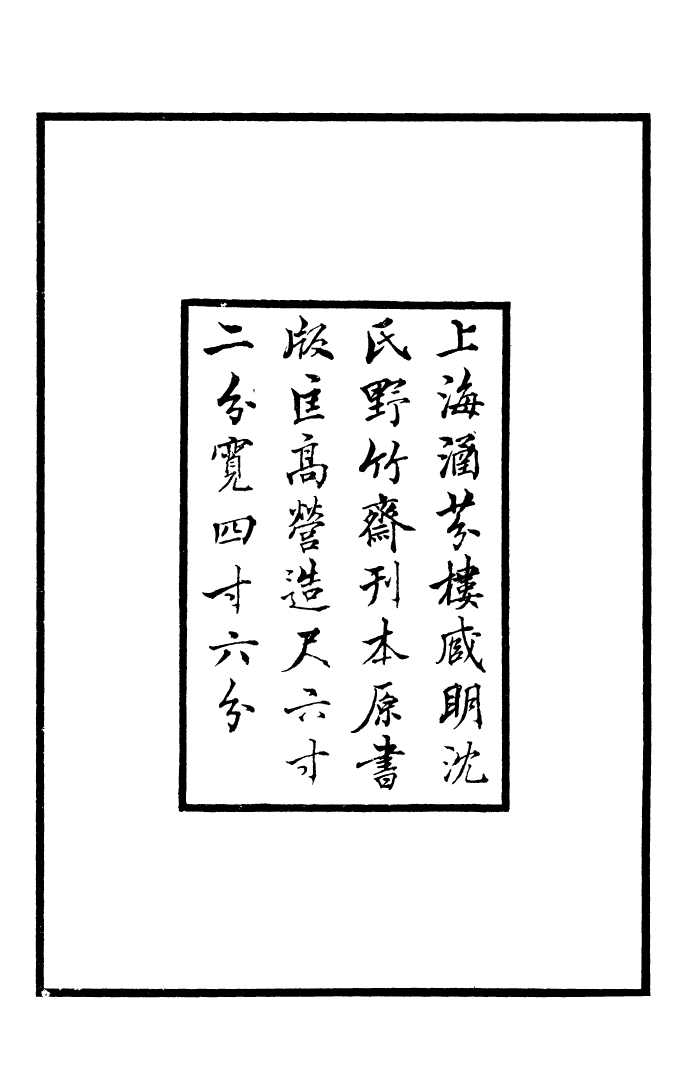 上海涵芬樓藏明沈
氏野竹齋刊本原書
版匡高營造尺六寸
二分寬四寸六分